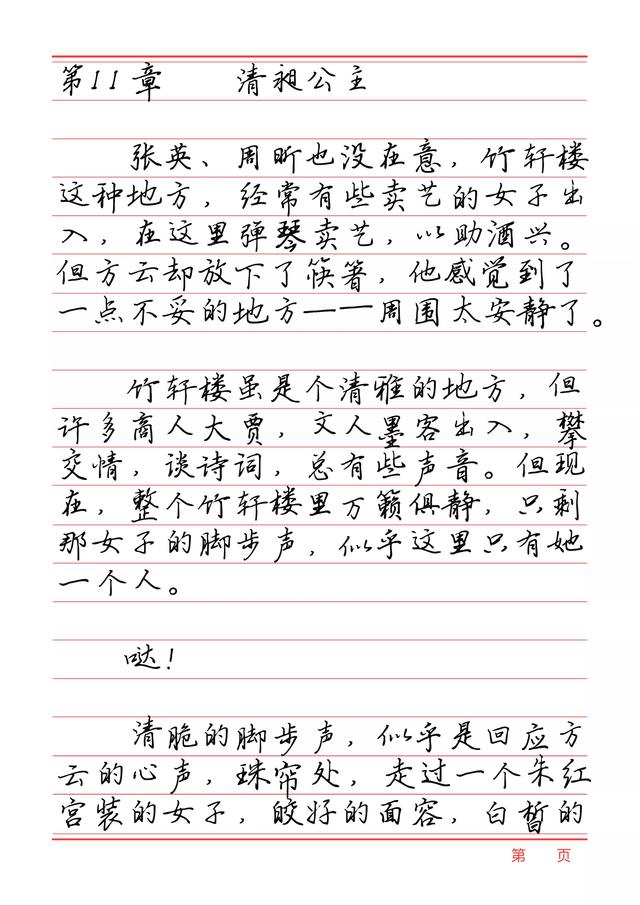 第11章 清昶公主
张英、周昕也没在意，竹轩楼
这种地方，经常有些卖艺的女子出
入，在这里弹琴卖艺，以助酒兴。
但方云却放下了筷箸，他感觉到了
一点不妥的地方——周围太安静了。
竹轩楼虽是个清雅的地方，但
许多高人大贾，文人墨客出入，攀
交情，谈诗词，总有些声音。但现
在，整个竹轩楼里万籁俱静，只剩
那女子的脚步声，似乎这里只有她
一个人。
哒！
清脆的脚步声，似乎是回应方
云的心声，珠帘处，走过一个朱红
宫装的女子，皎好的面容，白皙的
第 页